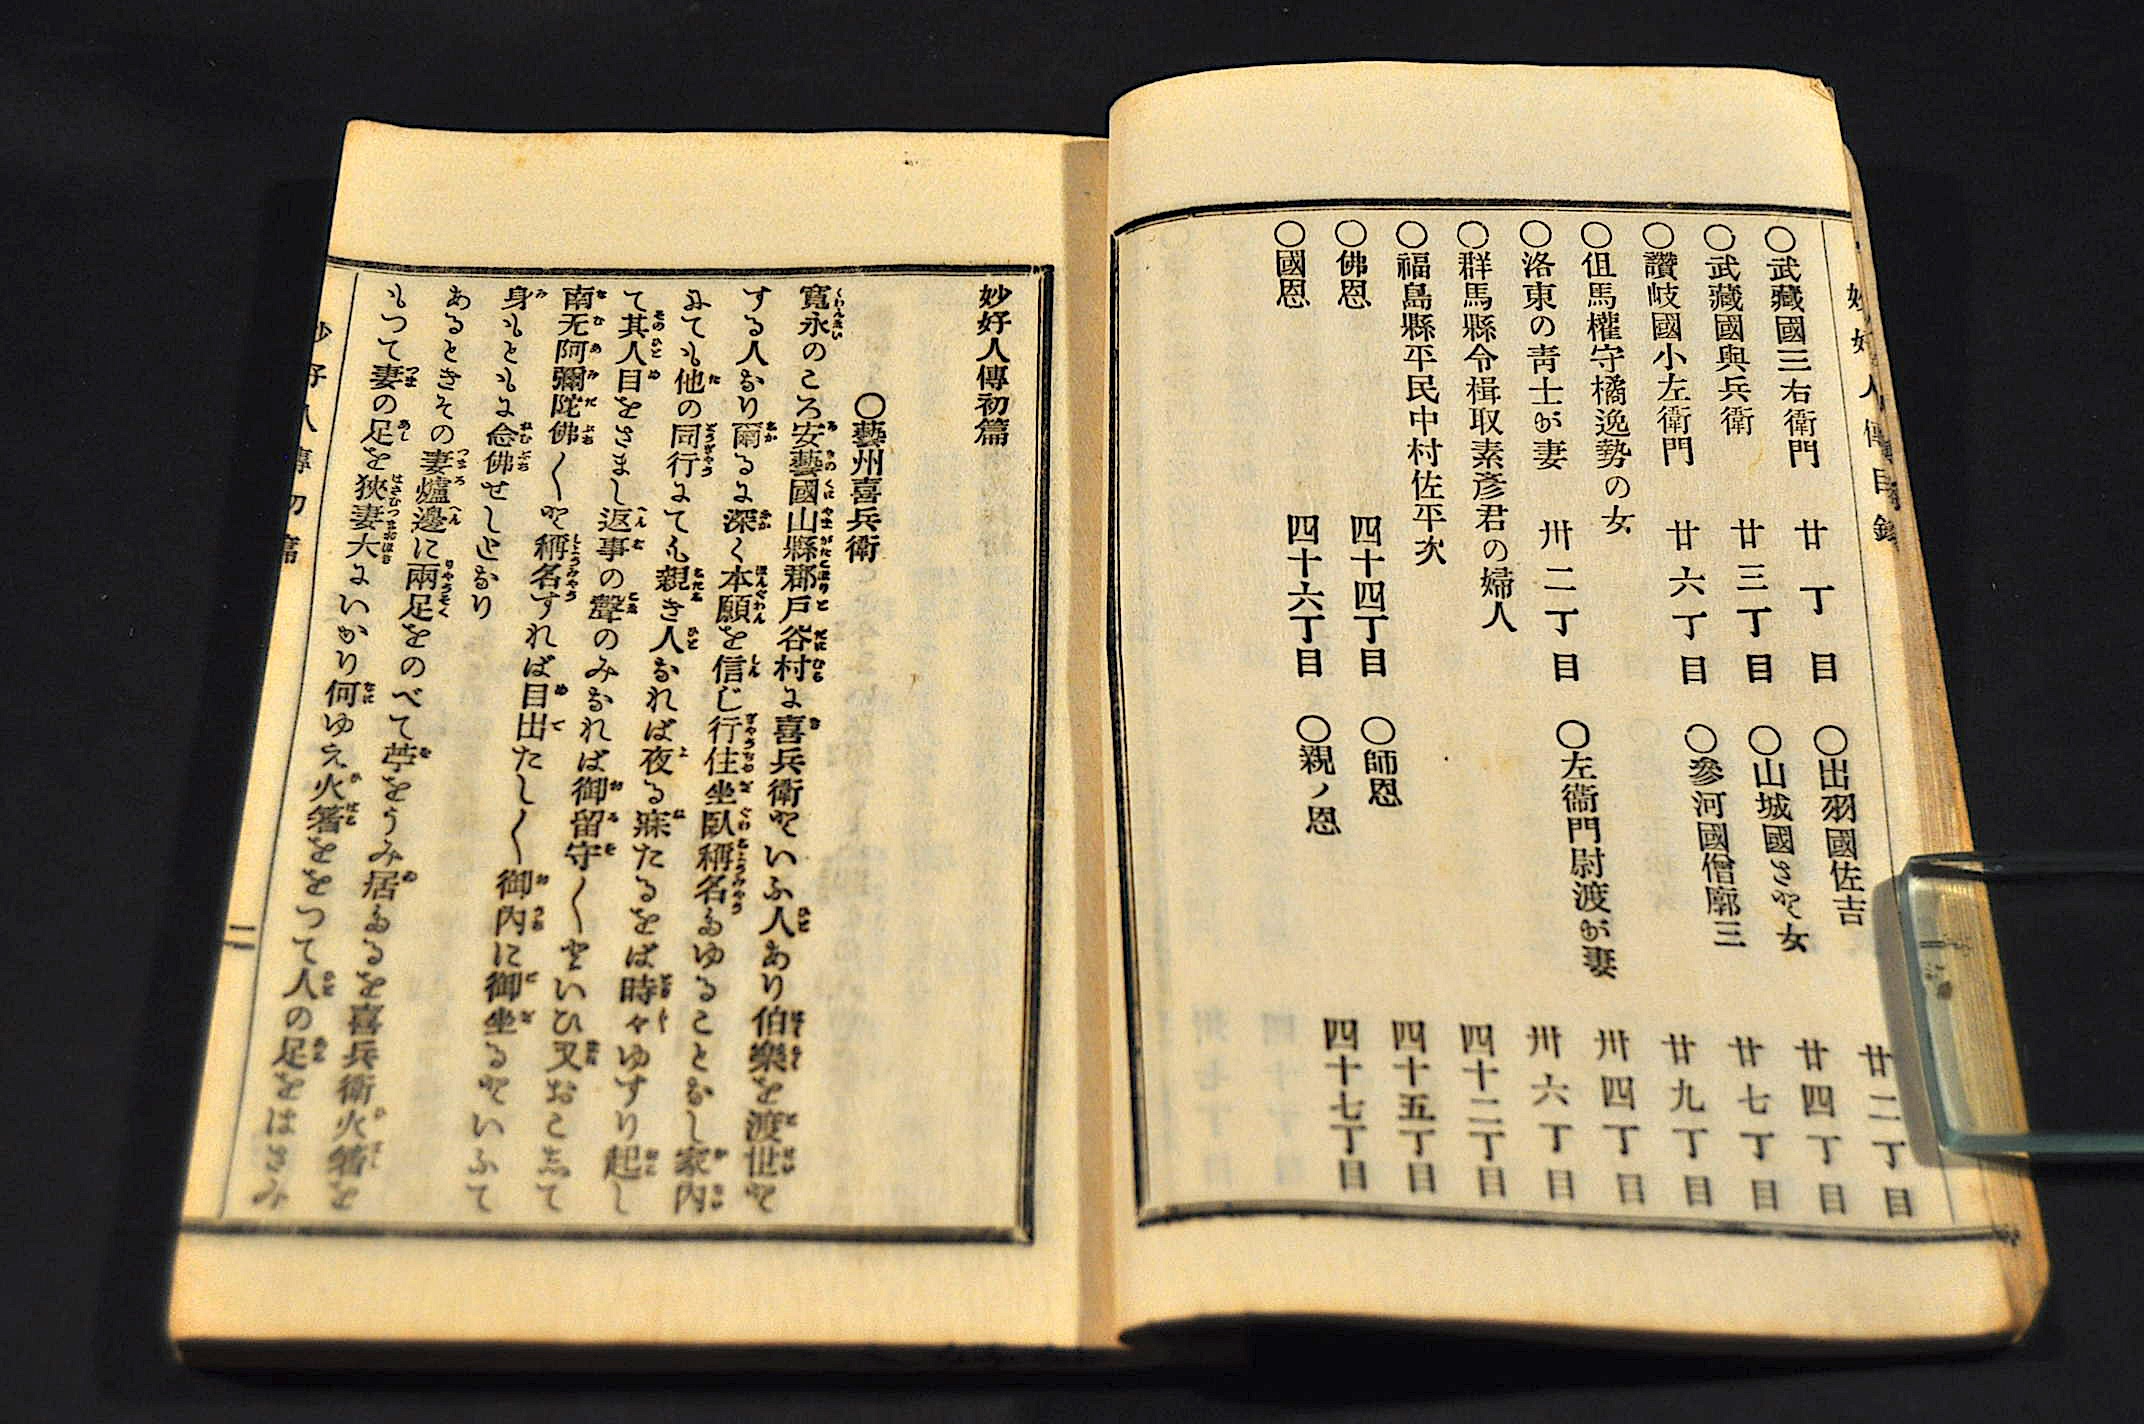 妙好人傳目錄
○武藏國三右衛門 廿丁目 ○出羽國佐吉 廿二丁目
○武藏國與兵衛 廿三丁目 ○山城國さと女 廿四丁目
○讚岐國小左衛門 廿六丁目 ○參河國僧廓三 廿七丁目
○但馬權守橘逸勢の女 廿九丁目
○洛東の靑士が妻 卅二丁目 ○左衞門尉渡が妻 卅四丁目
○群馬縣令楫取素彥君の婦人 卅六丁目
○福島縣平民中村佐平次 四十二丁目
○佛恩 四十四丁目 ○師恩 四十五丁目
○國恩 四十六丁目 ○親ノ恩 四十七丁目
妙好人傳初篇
○藝州喜兵衛
寛永のころ安藝國山縣郡戸谷村に喜兵衛といふ人あり伯樂を渡世と
する人なり爾るに深く本願を信じ行住坐臥稱名怠ゆることなし家内
にても他の同行にても親き人なれば夜る寐たるをば時々ゆすり起し
て其人目をさまし返事の聲のみなれば御留守〱といひ又おこして
南无阿彌陀佛〱と稱名すれば目出たし〱御内に御坐るといふて
身もともに念佛せしとなり
あるときその妻爐邊に兩足をのべて苧をうみ居るを喜兵衛火箸を
もつて妻の足を狹妻大にいかり何ゆえ火箸ををつて人の足をはさみ
妙好人傳初篇 二